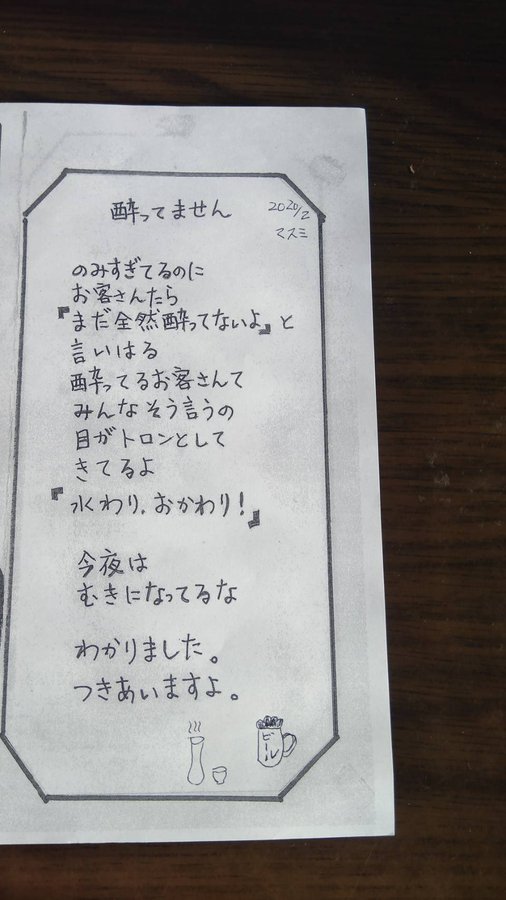 酔ってません
2020/2
マスミ
のみすぎてるのに
お客さんたら
『まだ全然酔ってないよ』と
言いはる
酔ってるお客さんて
みんなそう言うの
目がトロンとして
きてるよ
『水わり、おかわり!』
今夜は
むきになってるな
わかりました。
つきあいますよ。
ビール